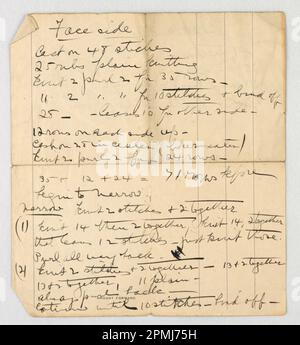 Face side
Cast on 48 stiches
25 ribs plain knitting
Knit 2 purl 2 for 35 rows -
" 2 " " for 10 stitches & bind off
25 - leaves 10 for other side -
12 rows on each side up -
Cast on 25 in center
Knit 2 purl 2 for rows -
35 + 12 + 24 = 71 rows before
begin to narrow.
narrow Knit 2 stitches & 2 together
(1) Knit 14 then 2 together, Knit 14, 2 together
that leaves 12 stitches just knit those
Purl all way back.
(2) Knit 2 stitches & 2 together - 13 & 2 together
13 & 2 together, 11 plain -
always purl back
until 10 stitches - bind off -
alamy
Image ID: 2PMJ75H
www.alamy.com